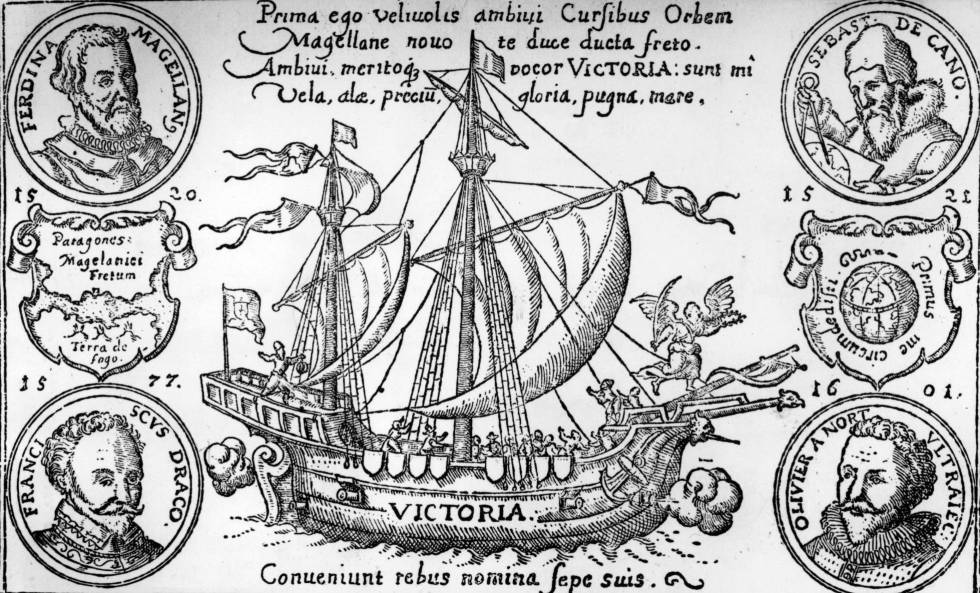 Prima ego velivolis ambivi Cursibus Orbem
Magellane novo te duce ducta freto.
Ambivi, meritoq₃ vocor VICTORIA: sunt mî
Vela, alæ, preciũ, gloria, pugna, mare.
FERDINA MAGELLAN.
1520.
SEBAST. DE CANO.
1521
Patagones:
Magelanici
Fretum
Terra de
fogo.
Primus me circumcedisti
1577.
FRANCISCVS DRACO.
1601.
OLIVIER A NORT VLTRAIEC:
VICTORIA.
Conveniunt rebus nomina sepe suis.